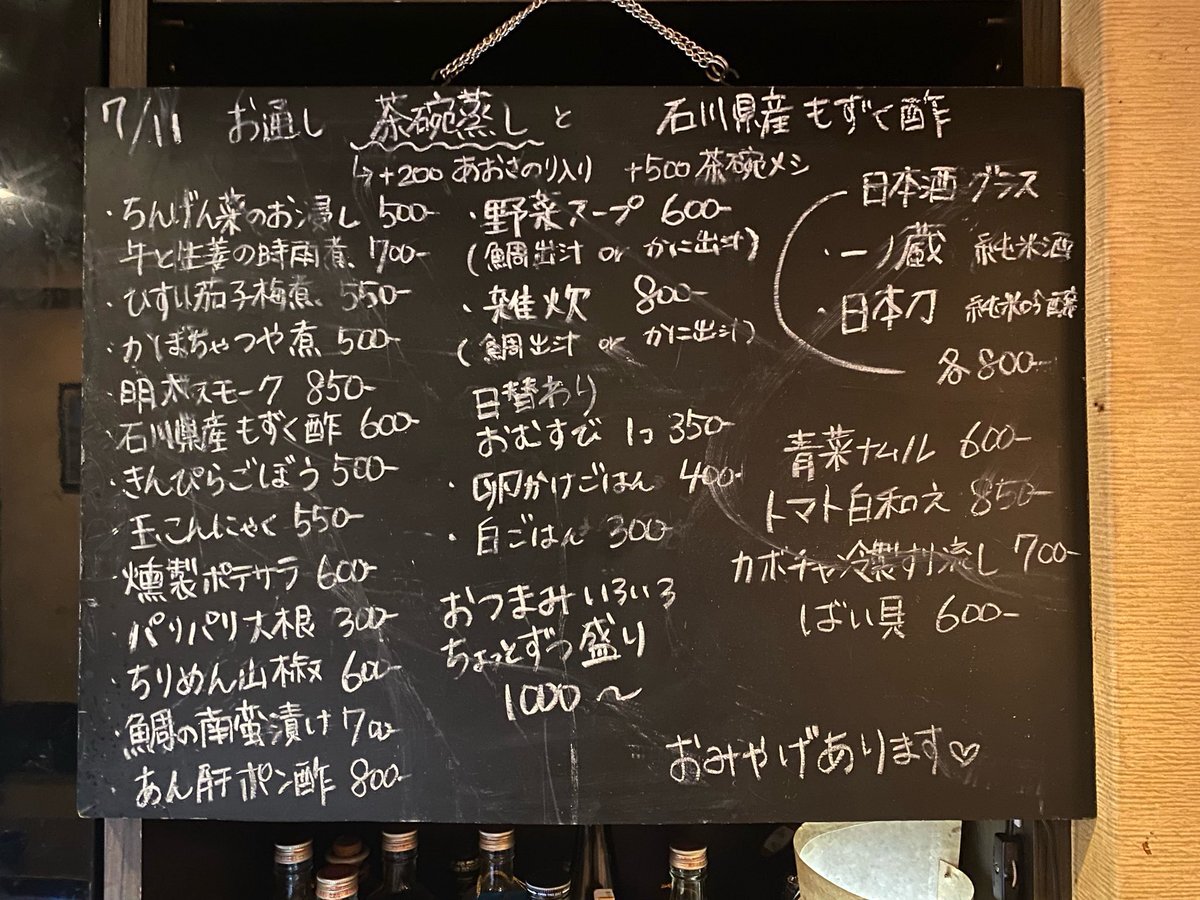 7/11 お通し 茶碗蒸し と 石川県産もずく酢
↳+200 あおさのり入り +500 茶碗メシ
・ちんげん菜のお浸し 500-
牛と生姜の時雨煮 700-
・ひすい茄子梅煮 550-
・かぼちゃつや煮 500-
・明太スモーク 850-
・石川県産もずく酢 600-
・きんぴらごぼう 500-
・玉こんにゃく 550-
・燻製ポテサラ 600-
・パリパリ大根 300-
・ちりめん山椒 600-
・鯛の南蛮漬け 700-
・あん肝ポン酢 800-
・野菜スープ 600-
(鯛出汁 or かに出汁)
・雑炊 800-
(鯛出汁 or かに出汁)
日替わり
おむすび 1コ 350-
・卵かけごはん 400-
・白ごはん 300-
おつまみいろいろ
ちょっとずつ盛り
1000〜
日本酒グラス
・一ノ蔵 純米酒
・日本刀 純米吟醸
各800-
青菜ナムル 600-
トマト白和え 850-
カボチャ冷製すり流し 700-
ばい貝 600-
おみやげあります♡